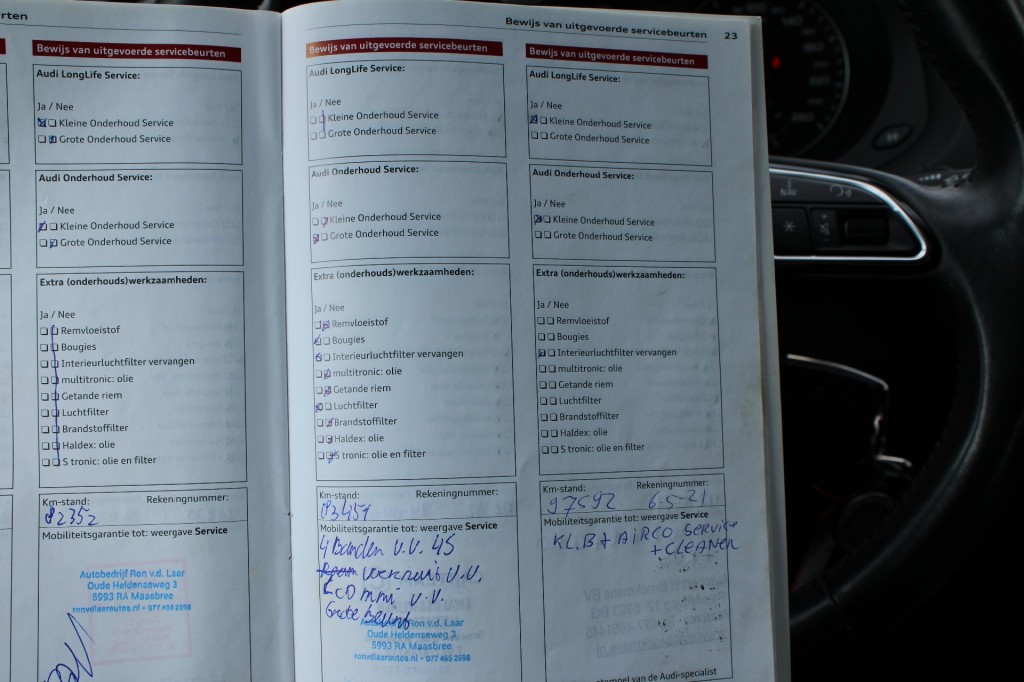 rten
Bewijs van uitgevoerde servicebeurten
Audi LongLife Service:
Ja / Nee
Kleine Onderhoud Service
Grote Onderhoud Service
Audi Onderhoud Service:
Ja / Nee
Kleine Onderhoud Service
Grote Onderhoud Service
Extra (onderhouds)werkzaamheden:
Ja / Nee
Remvloeistof
Bougies
Interieurluchtfilter vervangen
multitronic: olie
Getande riem
Luchtfilter
Brandstoffilter
Haldex: olie
S tronic: olie en filter
Km-stand: Rekeningnummer:
82352
Mobiliteitsgarantie tot: weergave Service
Autobedrijf Ron v.d. Laar
Oude Heldenseweg 3
5993 RA Maasbree
ronvdlaarautos.nl - 077 465 2698
Bewijs van uitgevoerde servicebeurten 23
Bewijs van uitgevoerde servicebeurten
Audi LongLife Service:
Ja / Nee
Kleine Onderhoud Service
Grote Onderhoud Service
Audi Onderhoud Service:
Ja / Nee
Kleine Onderhoud Service
Grote Onderhoud Service
Extra (onderhouds)werkzaamheden:
Ja / Nee
Remvloeistof
Bougies
Interieurluchtfilter vervangen
multitronic: olie
Getande riem
Luchtfilter
Brandstoffilter
Haldex: olie
S tronic: olie en filter
Km-stand: Rekeningnummer:
Mobiliteitsgarantie tot: weergave Service
4 Banden V.V. 45
V.V.
V.V.
Grote Beurt
Autobedrijf Ron v.d. Laar
Oude Heldenseweg 3
5993 RA Maasbree
ronvdlaarautos.nl - 077 465 2698
Bewijs van uitgevoerde servicebeurten
Audi LongLife Service:
Ja / Nee
Kleine Onderhoud Service
Grote Onderhoud Service
Audi Onderhoud Service:
Ja / Nee
Kleine Onderhoud Service
Grote Onderhoud Service
Extra (onderhouds)werkzaamheden:
Ja / Nee
Remvloeistof
Bougies
Interieurluchtfilter vervangen
multitronic: olie
Getande riem
Luchtfilter
Brandstoffilter
Haldex: olie
S tronic: olie en filter
Km-stand: Rekeningnummer:
97592 6-5-21
Mobiliteitsgarantie tot: weergave Service
KL.B + AIRCO SERVICE
+ CLEANER
stempel van de Audi-specialist
NAV